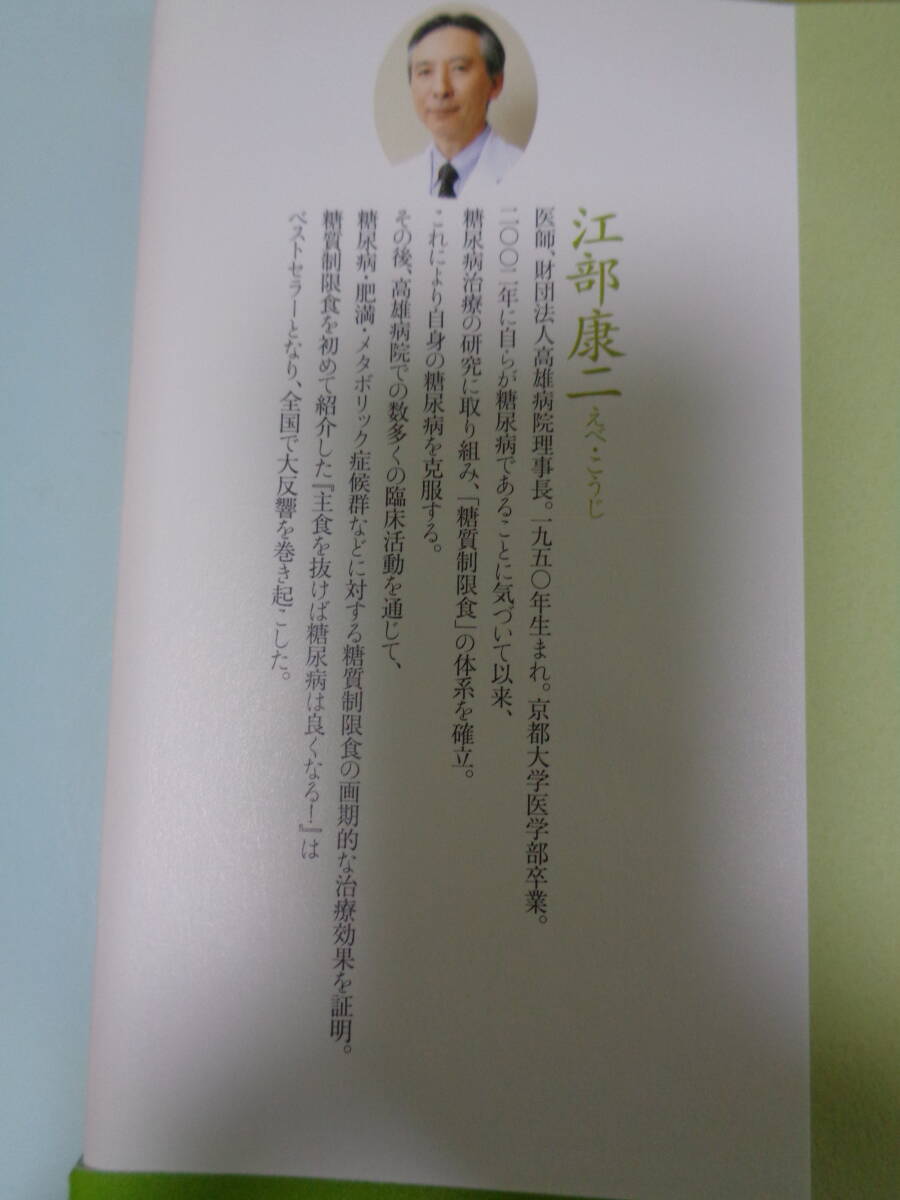 江部康二 えべ・こうじ
医師、財団法人高雄病院理事長。一九五〇年生まれ。京都大学医学部卒業。
二〇〇二年に自らが糖尿病であることに気づいて以来、
糖尿病治療の研究に取り組み、「糖質制限食」の体系を確立。
これにより自身の糖尿病を克服する。
その後、高雄病院での数多くの臨床活動を通じて、
糖尿病・肥満・メタボリック症候群などに対する糖質制限食の画期的な治療効果を証明。
糖質制限食を初めて紹介した『主食を抜けば糖尿病は良くなる！』は
ベストセラーとなり、全国で大反響を巻き起こした。